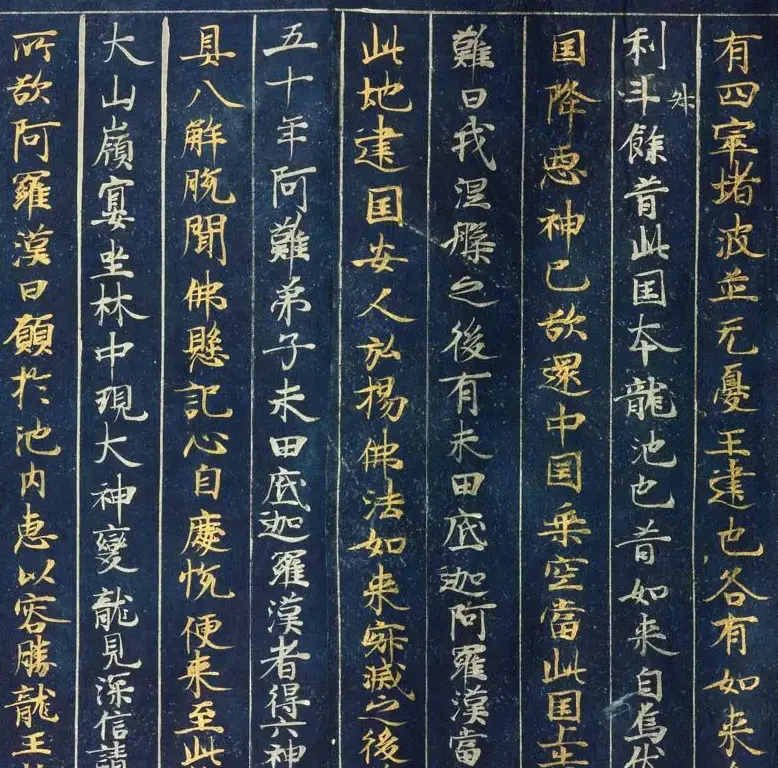 有四窣堵波並无憂王建也各有如来
利斗餘昔此国本龍池也昔如来自烏伏
舛
国降惡神已欲還中国乗空當此国上告
難曰我涅槃之後有末田底迦阿羅漢當
此地建国安人弘揚佛法如来寂滅之後
五十年阿難弟子末田底迦羅漢者得六神
具八解脱聞佛懸記心自慶恱便来至此
大山嶺宴坐林中現大神變龍見深信請
所欲阿羅漢曰願於池内惠以容膝龍王